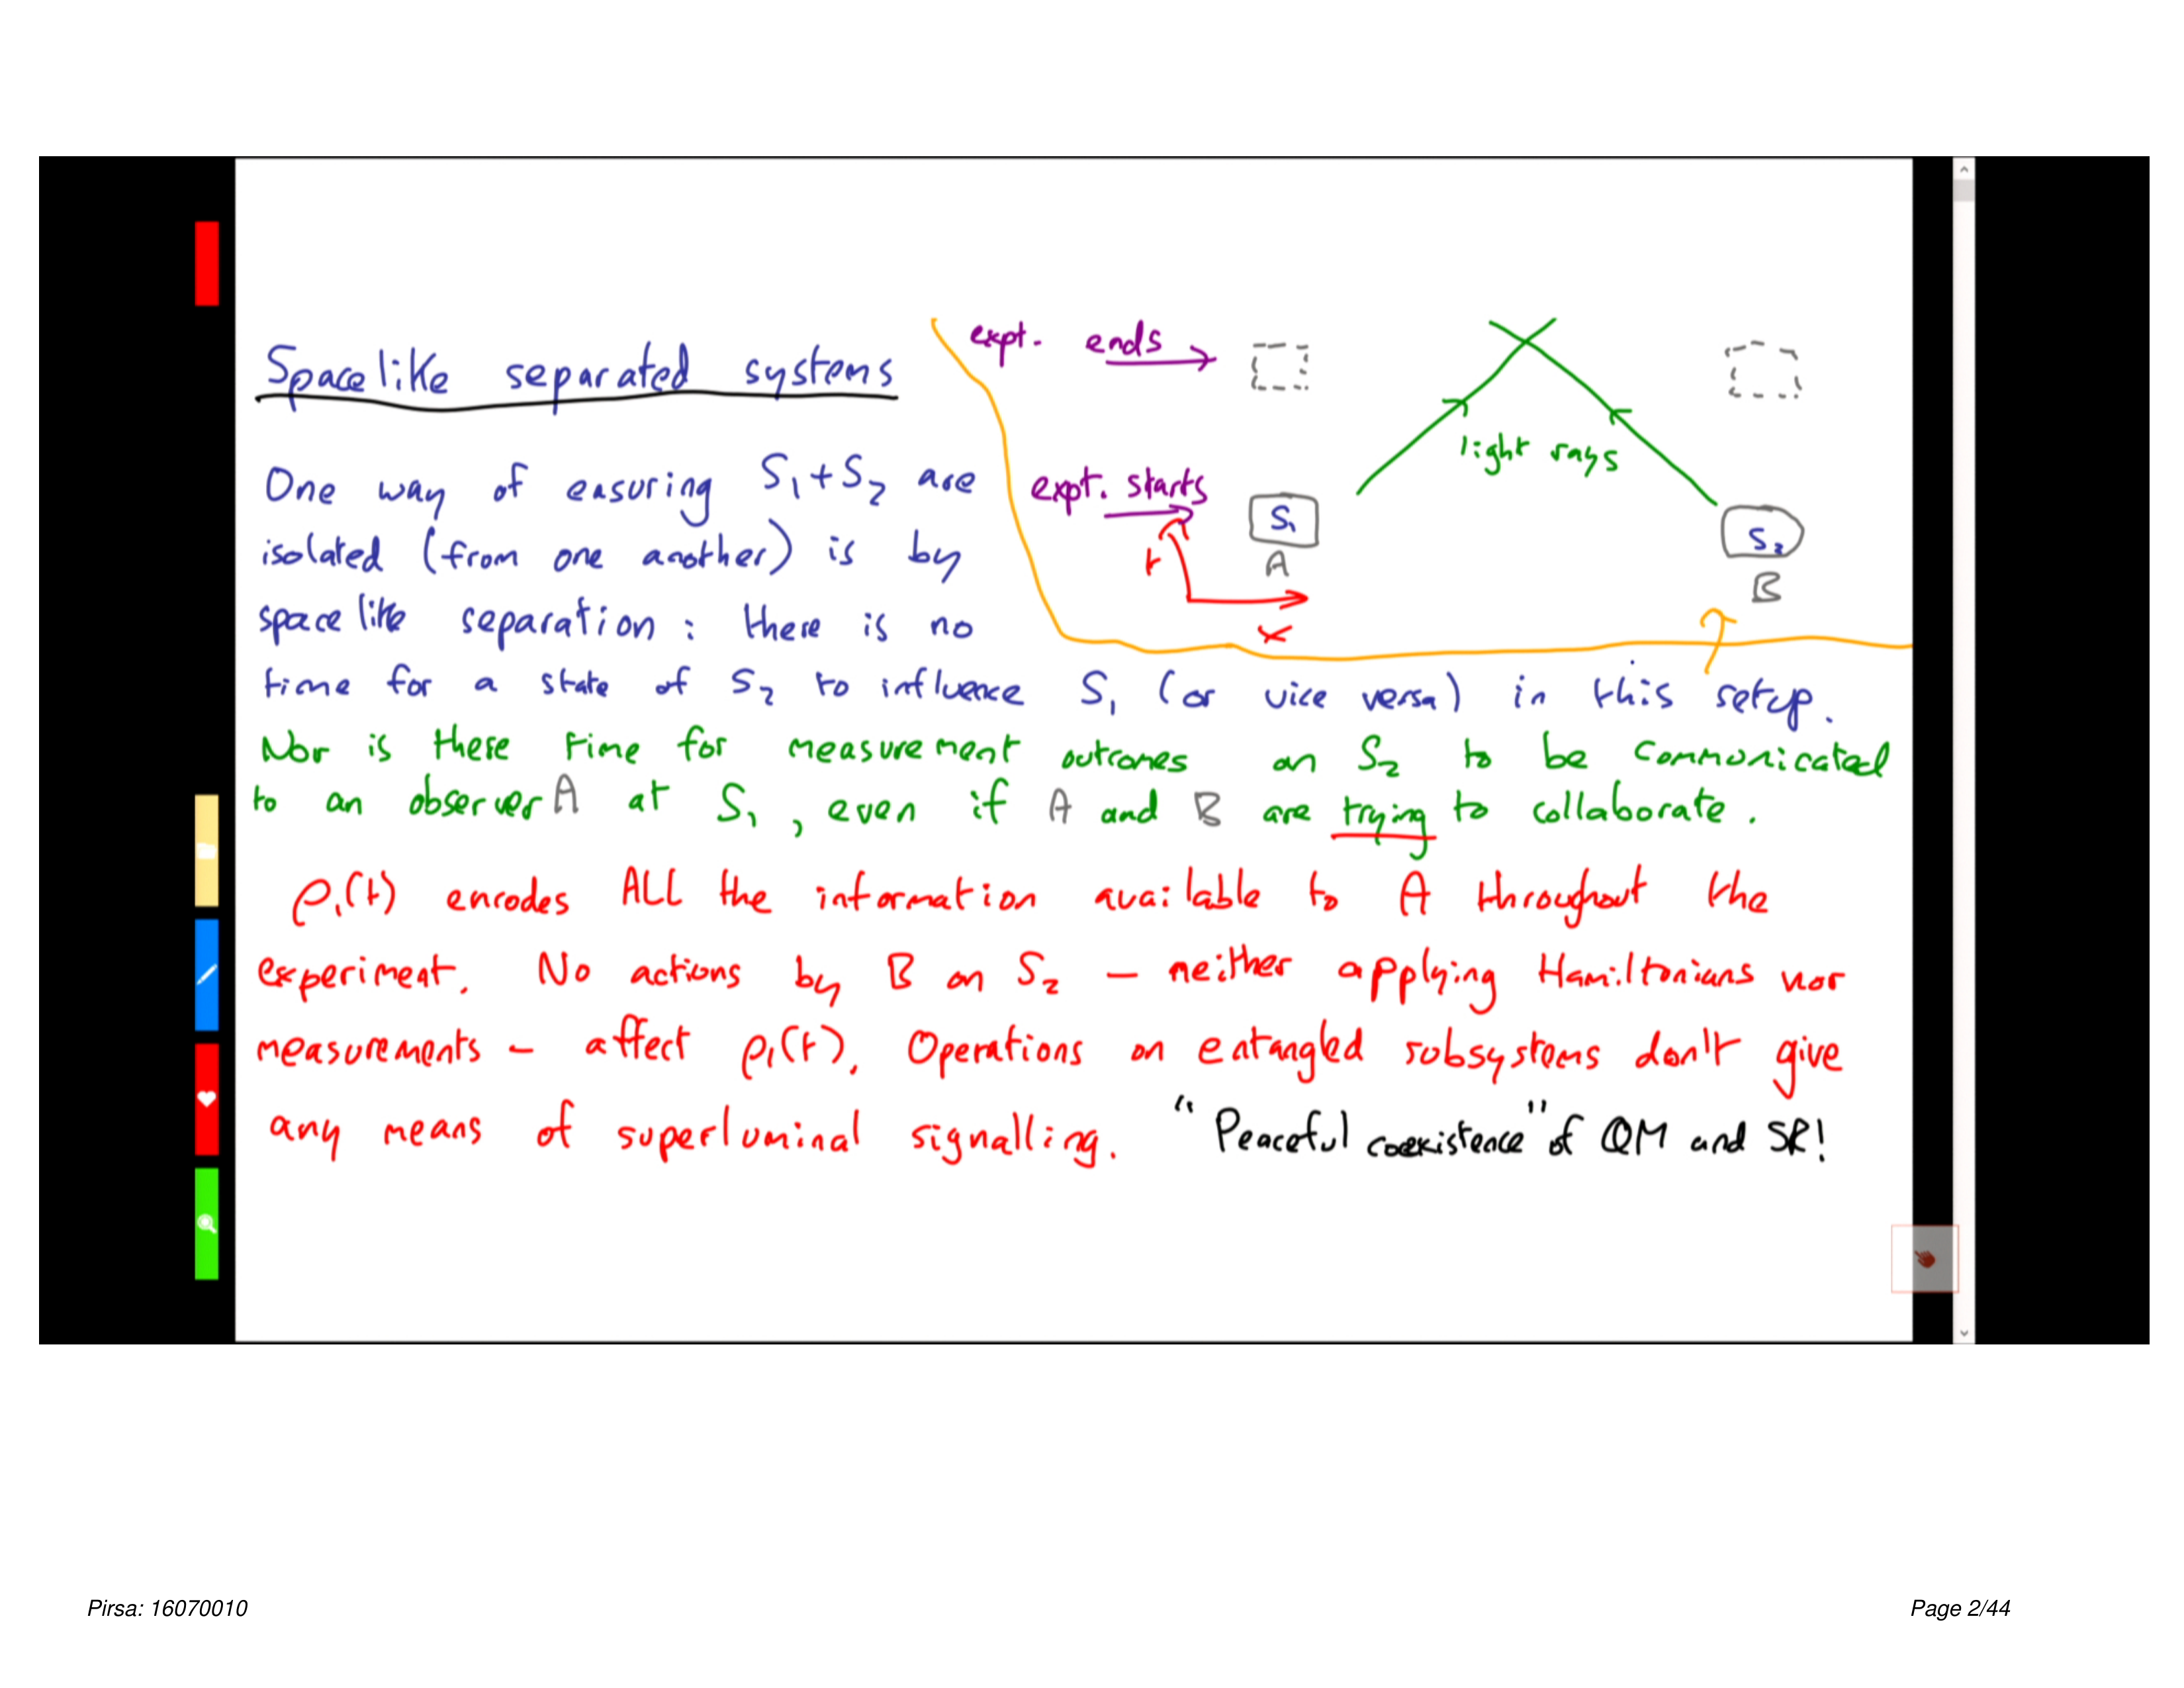 expt. ends
Spacelike separated systems
light rays
One way of easuring S1+S2 are
expt. starts
S1
S2
isolated (from one another) is by
t
A
B
spacelike separation : there is no
x
time for a state of S2 to influence S1 (or vice versa) in this setup.
Nor is there time for measurement outcomes on S2 to be communicated
to an observer A at S1, even if A and B are trying to collaborate.
ρ1(t) encodes ALL the information available to A throughout the
experiment. No actions by B on S2 – neither applying Hamiltonians nor
measurements – affect ρ1(t). Operations on entangled subsystems don't give
any means of superluminal signalling. "Peaceful coexistence" of QM and SR!
Pirsa: 16070010
Page 2/44